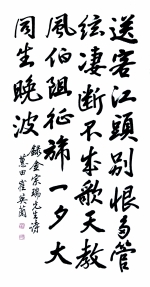 送客江頭別恨多管
絃凄斷不成歌天教
風伯阻征旆一夕大
同生晚波
錄金宗瑞先生詩
蕙田崔英蘭